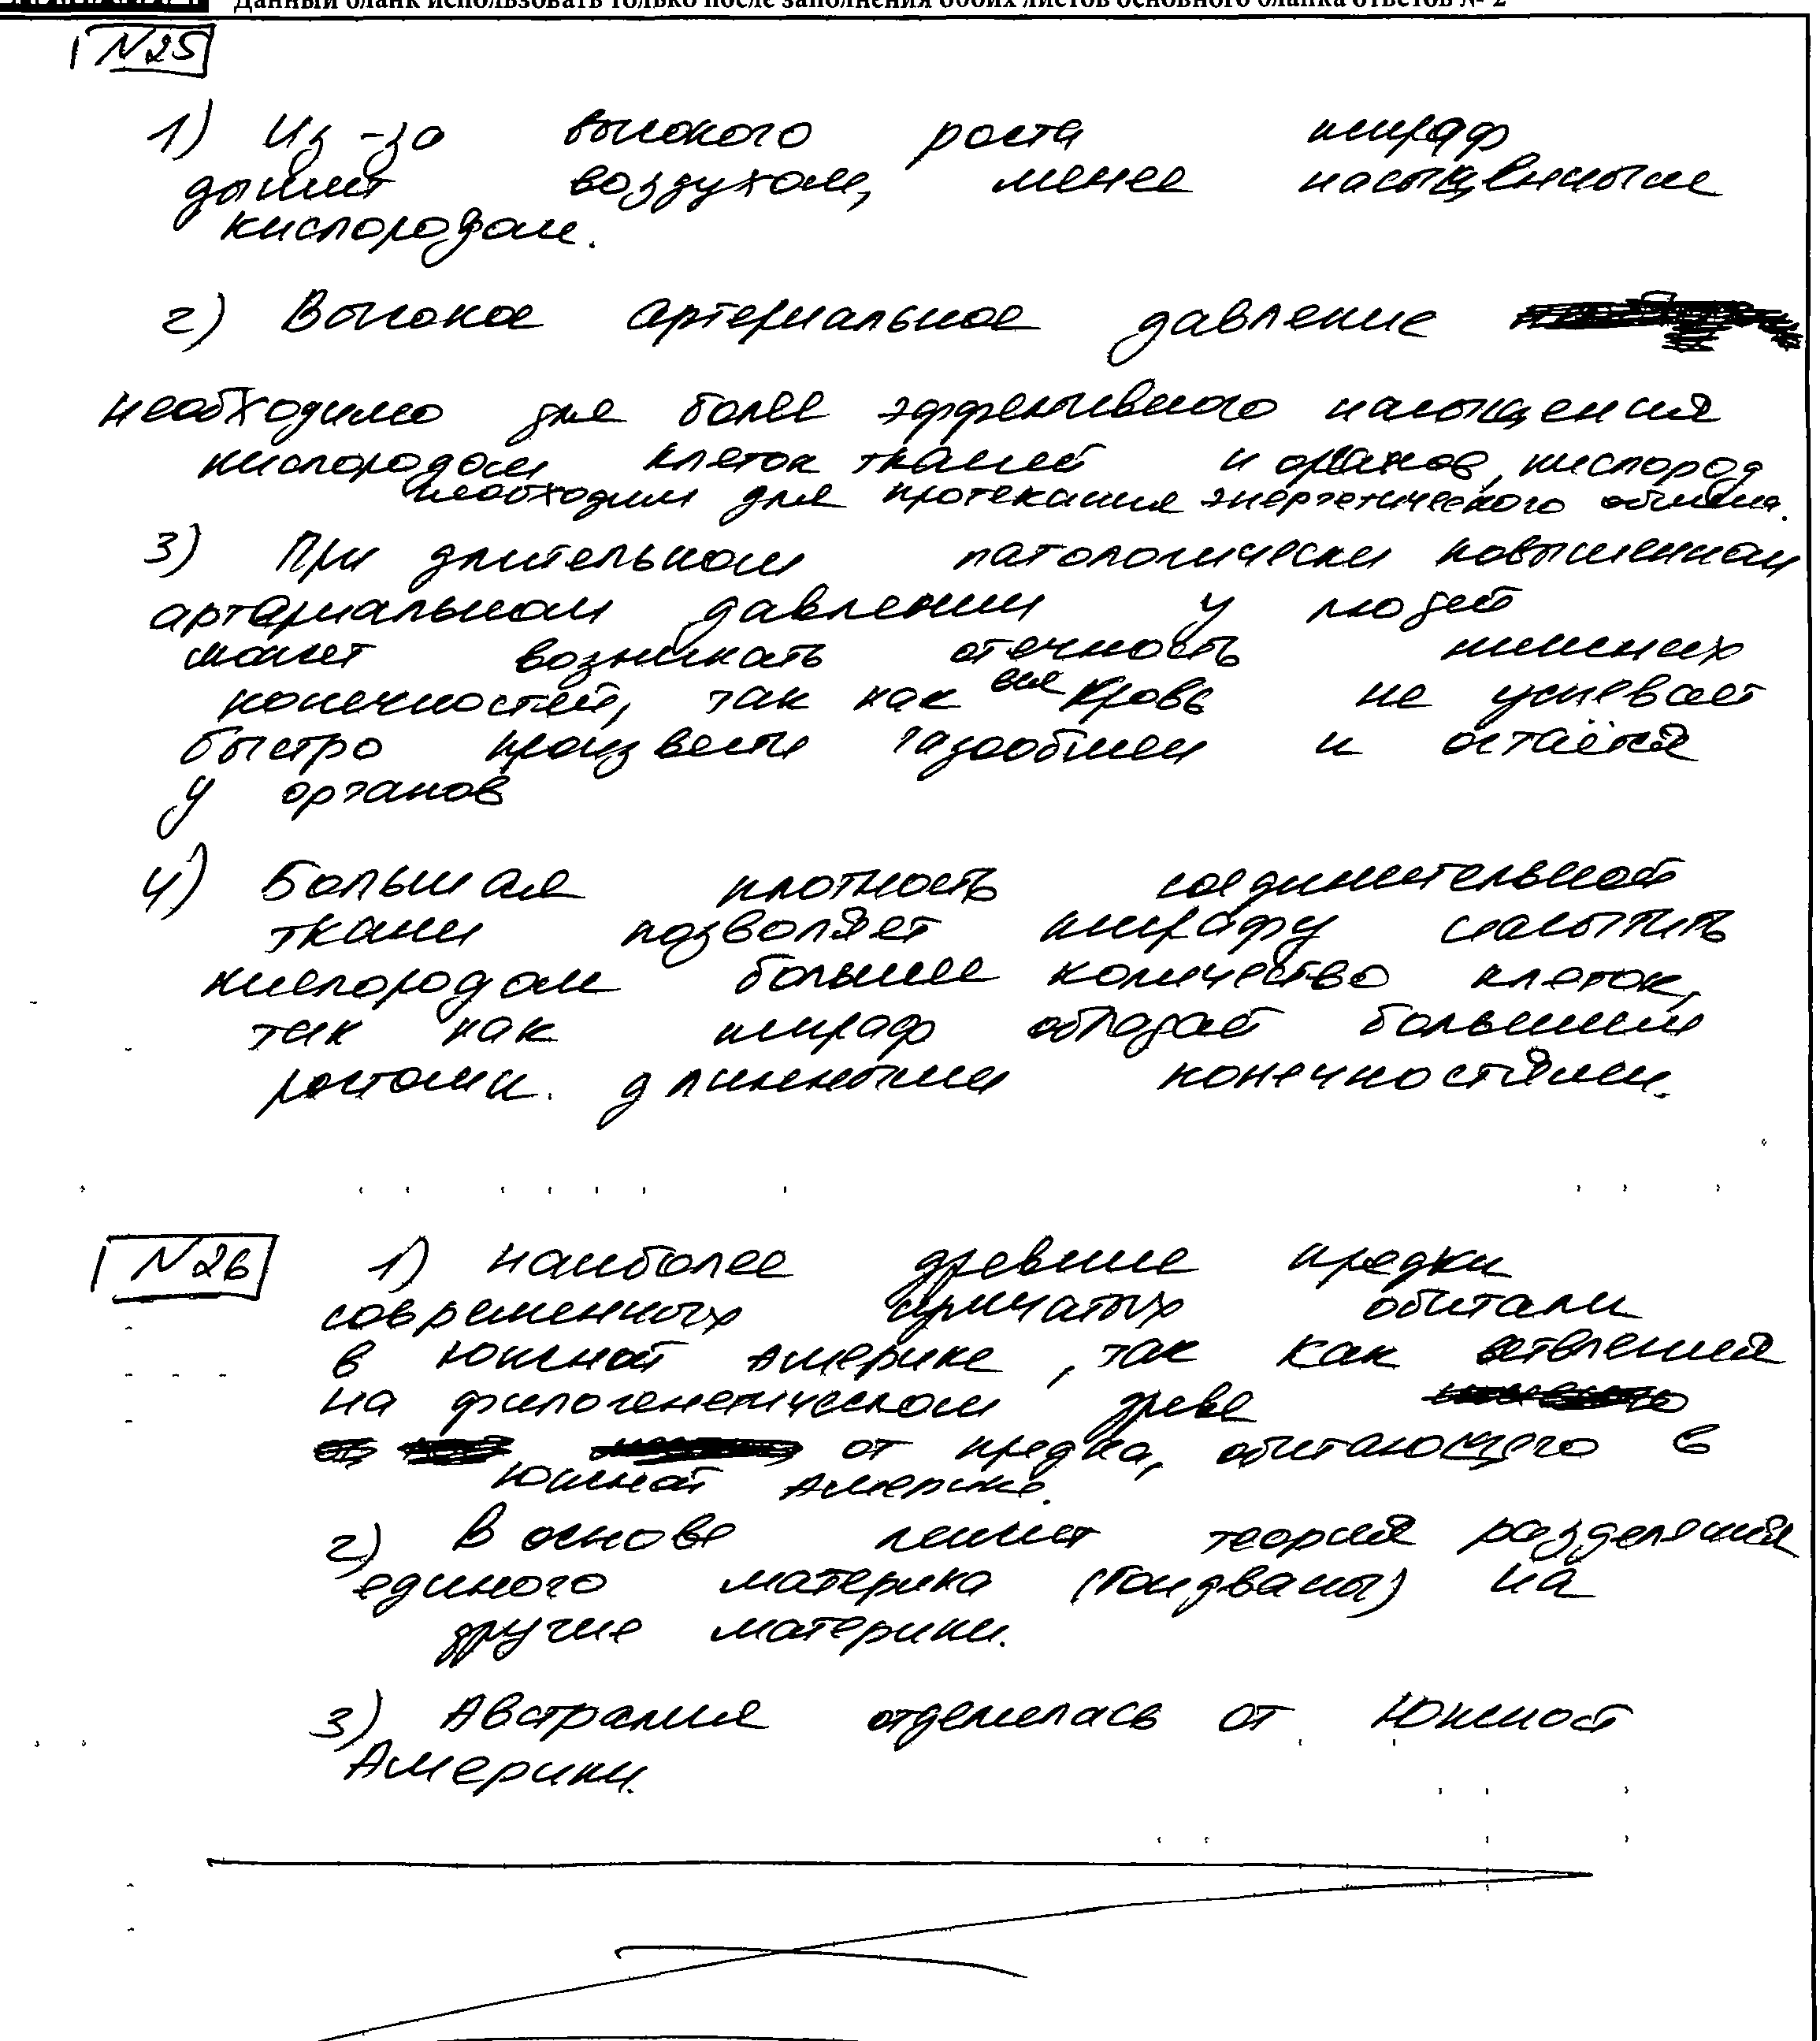 Данный бланк использовать только после заполнения обоих листов основного бланка ответов № 2
N25
1) Из-за высокого роста жираф
дышит воздухом, менее насыщенным
кислородом.
2) Высокое артериальное давление
необходимо для более эффективного насыщения
кислородом клеток тканей и органов, кислород
необходим для протекания энергетического обмена.
3) При длительном патологически повышенном
артериальном давлении у людей
может возникать отечность нижних
конечностей, так как вся кровь не успевает
быстро произвести газообмен и остаётся
у органов
4) Большая плотность соединительной
ткани позволяет жирафу насытить
кислородом большее количество клеток,
так как жираф обладает большим
ростом и длинными конечностями.
N26 1) Наиболее древние предки
современных сумчатых обитали
в Южной Америке, так как ответвления
на филогенетическом древе
от предка, обитающего в
Южной Америке.
2) В основе лежит теория разделения
единого материка (Гондваны) на
другие материки.
3) Австралия отделилась от Южной
Америки.